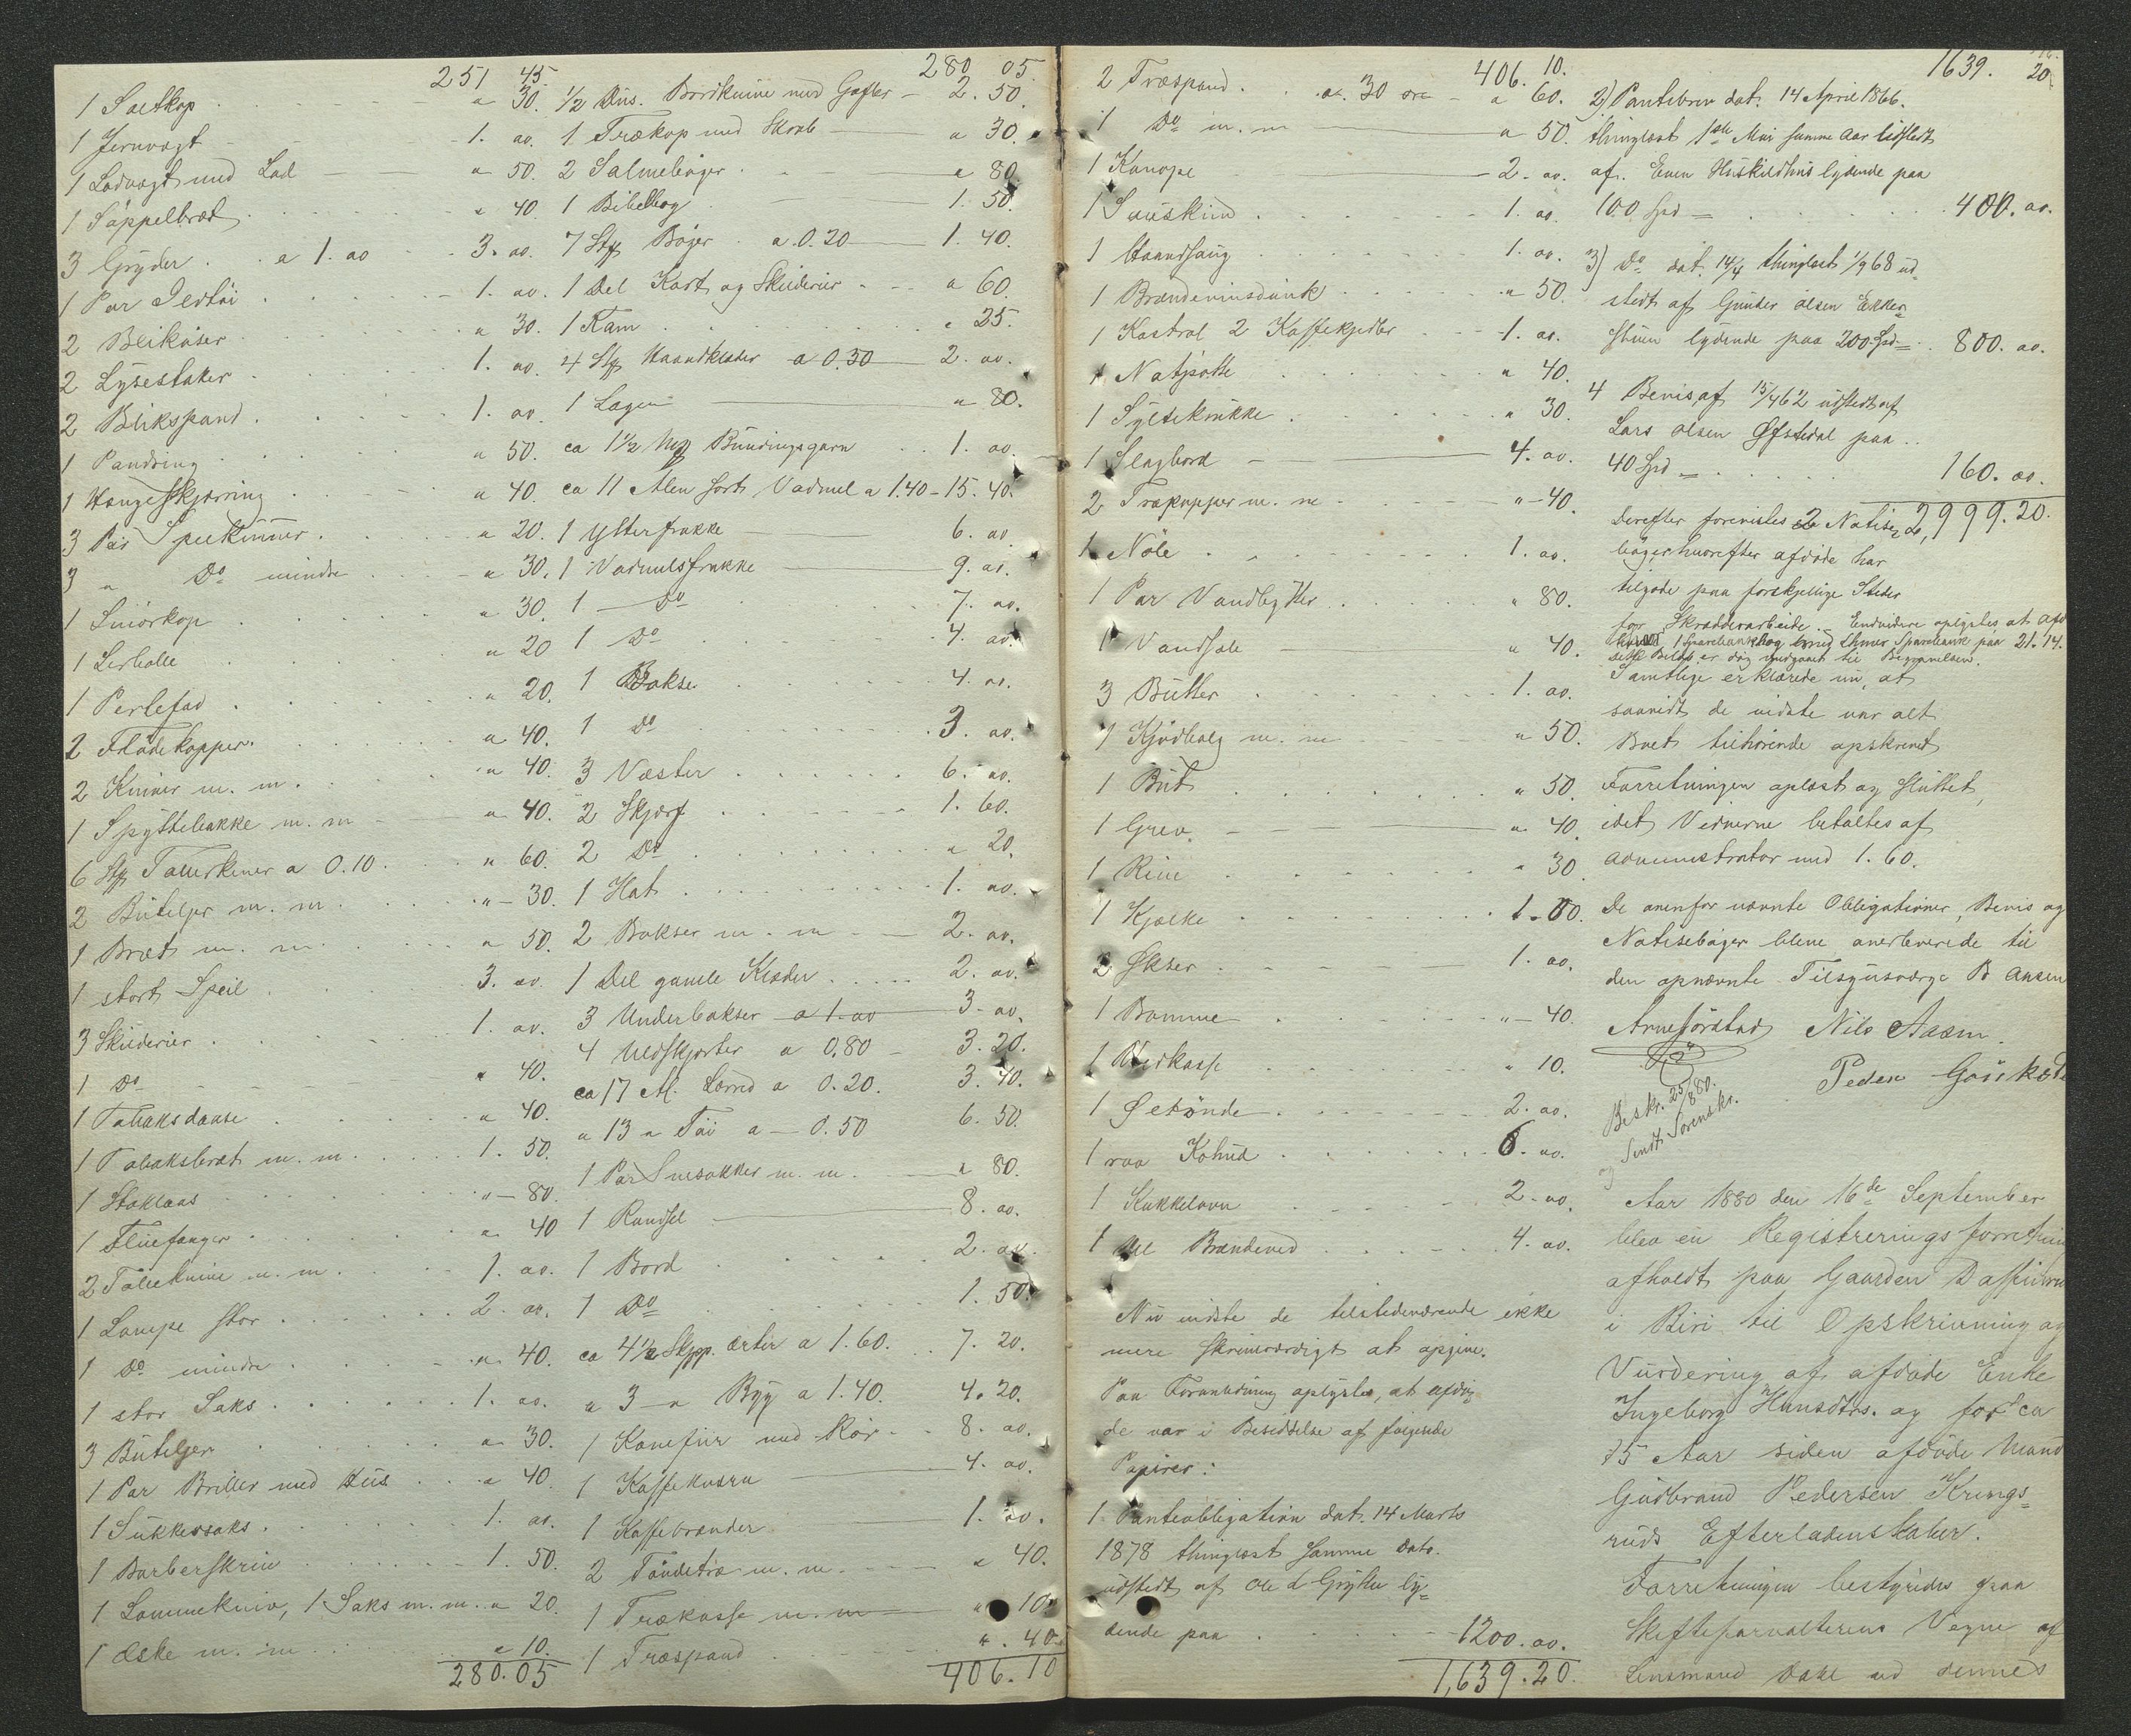 251 45.
1 Saltkop " 30.
1 Jernvagt 1. oo.
1 Lodvagt med Lod " 50.
1 Sáppelbræt " 40.
3 Gryder a 1. oo 3. oo.
1 Par Ildtöi 1. oo.
2 Blikåser " 30.
2 Lysestaker 1. oo.
2 Blikspand 1. oo.
1 Pandring " 50.
1 Hængeskjærring " 40.
3 Par " 20.
3 " Do mindre " 30.
1 Smörkop " 30.
1 Lerbolle " 20
1 Perlefad " 20.
2 Flödekopper " 40.
2 Kniver m. m. " 40.
1 Spyttebakke m. m " 40.
6 Stk Tallerkener a 0.10. " 60.
2 Buteljer m. m. " 30.
1 Bræt m. m. " 50.
1 stort Speil 3. oo.
3 Skilderier 1. oo.
1 Do " 40.
1 Tobaksdaase " 40.
1 Tobaksbræt m. m. 1. 50.
1 Stoklaas " 80.
1 Fluefanger " 40
2 Tolleknive m. m. 1. oo.
1 Lampe stor 2. oo.
1 Do mindre " 40.
1 stor Saks 1. oo.
3 Buteljer " 30.
1 Par Briller med Hus " 40.
1 Sukkersaks 1. oo.
1 Barberskrin 1. 50.
1 Lommekniv, 1 Saks m. m. " 20.
1 Æske m. m " 10.
280.05
280 05.
1/2 Dus. Bordknive med Gafler 2. 50.
1 Trækop med Skrab " 30.
2 Salmebøger " 80.
1 Bibelbog 1. 50.
7 Stk Bøger a 0.20 1. 40.
1 Del Kart og Skilderier " 60.
1 Kam " 25.
4 Stk Haandklæder a 0.50 2. oo.
1 Lagen " 80.
ca 1 1/2 Mk Bundingsgarn 1. oo.
ca 11 Alen sort Vadmel a 1.40 - 15. 40.
1 Ytterfrakke 6. oo.
1 Vadmelsfrakke 9. oo.
1 Do 7. oo.
1 Do 4. oo.
1 Bokse 4. oo.
1 Do 3. oo.
3 Vester 6. oo.
2 Skjærf 1. 60.
2 Do " 20.
1 Hat 1. oo.
2 Bokser m. m 2. oo.
1 Del gamle Klæder 2. oo.
3 Underbokser a 1. oo 3. oo.
4 Uldskjorter a 0.80 3. 20.
ca 17 Al. Lærred a 0.20. 3. 40.
" 13 " Töi a 0.50 6. 50.
1 Par Snesokker m. m. " 80.
1 Randsel 8. oo.
1 Bord 2. oo.
1 Do 1. 50.
ca 4 1/2 Skjpp. Ærter a 1.60. 7. 20.
" 3 " Byg a 1.40. 4. 20.
1 Konefur med Rör 8. oo.
1 Kaffekværn 4. oo.
1 Kaffebrænder 1. oo.
2 Töndetræ m. m. " 40.
1 Trækasse m. m " 10.
1 Træspand " 40.
406.10
406. 10.
2 Træspand a. 30 øre " 60.
1 Do m. m " 50.
1 Kanape 2. oo.
1 Saueskind 1. oo.
1 Haandsaug 1. oo.
1 Brændevinsdunk " 50.
1 Kastrol 2 Kaffekjedler 1. oo.
1 Natpotte " 40.
1 Syltekrukke " 30.
1 Slagbord 4. oo.
2 Trækopper m. m " 40.
1 Nöle 1. oo.
1 Par Vandbytter " 80.
1 Vandsole " 40.
3 Bütter 1. oo.
1 Kjödbalg m. m " 50.
1 But " 50.
1 Grev " 40.
1 Rive " 30
1 Kjælke 1. 00.
2 Økser 1. oo.
1 Bomme " 40.
1 Vedkasse " 10.
1 Øltönde 2. oo.
1 raa Kohud 6. oo.
1 Kakkelovn 2. oo.
1 Del Brændeved 4. oo.
Nu vidste de tilstedeværende ikke
mere skriveværdigt at opgive.
Paa Foranledning oplystes, at afdö-
de var i Besiddelse af følgende
Papirer:
1 Panteobligation dat. 14 Marts
1878 thinglæst samme Dato.
udstedt af Ole L Grytlie ly-
dende paa 1200. oo.
1,639.20.
1639. 20.
2) Pantebrev dat. 14 April 1866.
thinglæst 1ste Mai samme Aar udstedt
af. Even Huskildhus lydende paa
100 Spd = 400. oo.
3) Do dat. 14/4 thinglæst 1/9 68 ud
stedt af Gunder Olsen Ekker-
stuen lydende paa 200 Spd = 800. oo.
4 Bevis af 15/4 62 udstedt af
Lars Olsen Øfstedal paa
40 Spd = 160. oo.
2,999.20.
Derefter forevistes 2 Notise-
bøger, hvorefter afdöde har
tilgode paa forskjellige Steder
for Skrædderarbeide. Endvidere oplystes at afd
havde 1 Sparebankbog Sparebank paa 21.14.
dette Belöb er dog medgaaet til Begravelsen.
Samtlige erklærede nu, at
saavidt de vidste var alt
Boet tilhörende opskrevet
Forretningen oplæst og sluttet,
idet Vidnerne betaltes af
administrator med 1. 60.
De ovenfor nævnte Obligationer, Bevis og
Notisebøger bleve overleverede til
den opnævnte Tilsynsværge B Aasen
Arneforstad Nils Aasen.
Peder
Beskr. 25/9 80.
og Sendt Sorenskr.
Aar 1880 den 16de September
blev en Registreringsforretnin
afholdt paa Gaarden
i Biri til Opskrivning og
Vurdering af afdöde Enke
Ingeborg Hansdtrs. og for ca
15 Aar siden afdöde Mand
Gudbrand Pedersen Krings-
ruds Efterladenskaber.
Forretningen bestyredes paa
Skifteforvalterens Vegne af
Lensmand Dahl ved dennes